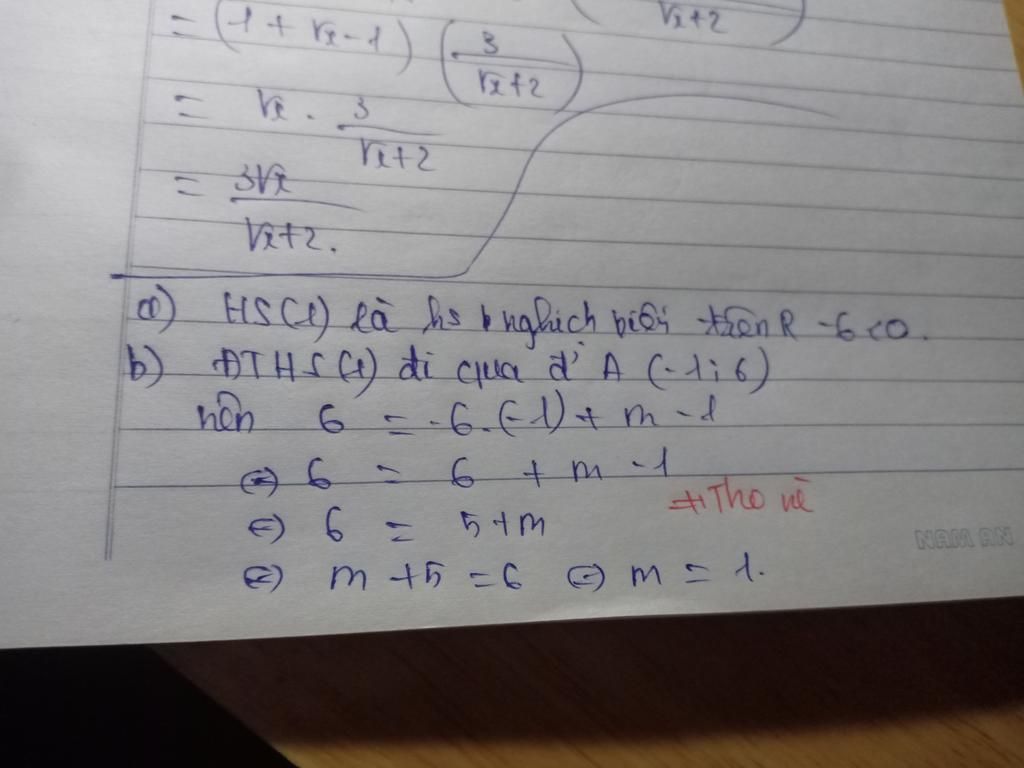 √x+2
= (1 + √x - 1) (3/√x+2)
= √x . 3/√x+2
= 3√x/√x+2.
a) HS(1) là hs nghịch biến trên R -6<0.
b) ĐTHS(1) đi qua đ' A (-1; 6)
nên 6 = -6.(-1) + m - 1
⇔ 6 = 6 + m - 1
⇔ 6 = 5 + m
⇔ m + 5 = 6 ⇔ m = 1.
NAM AN